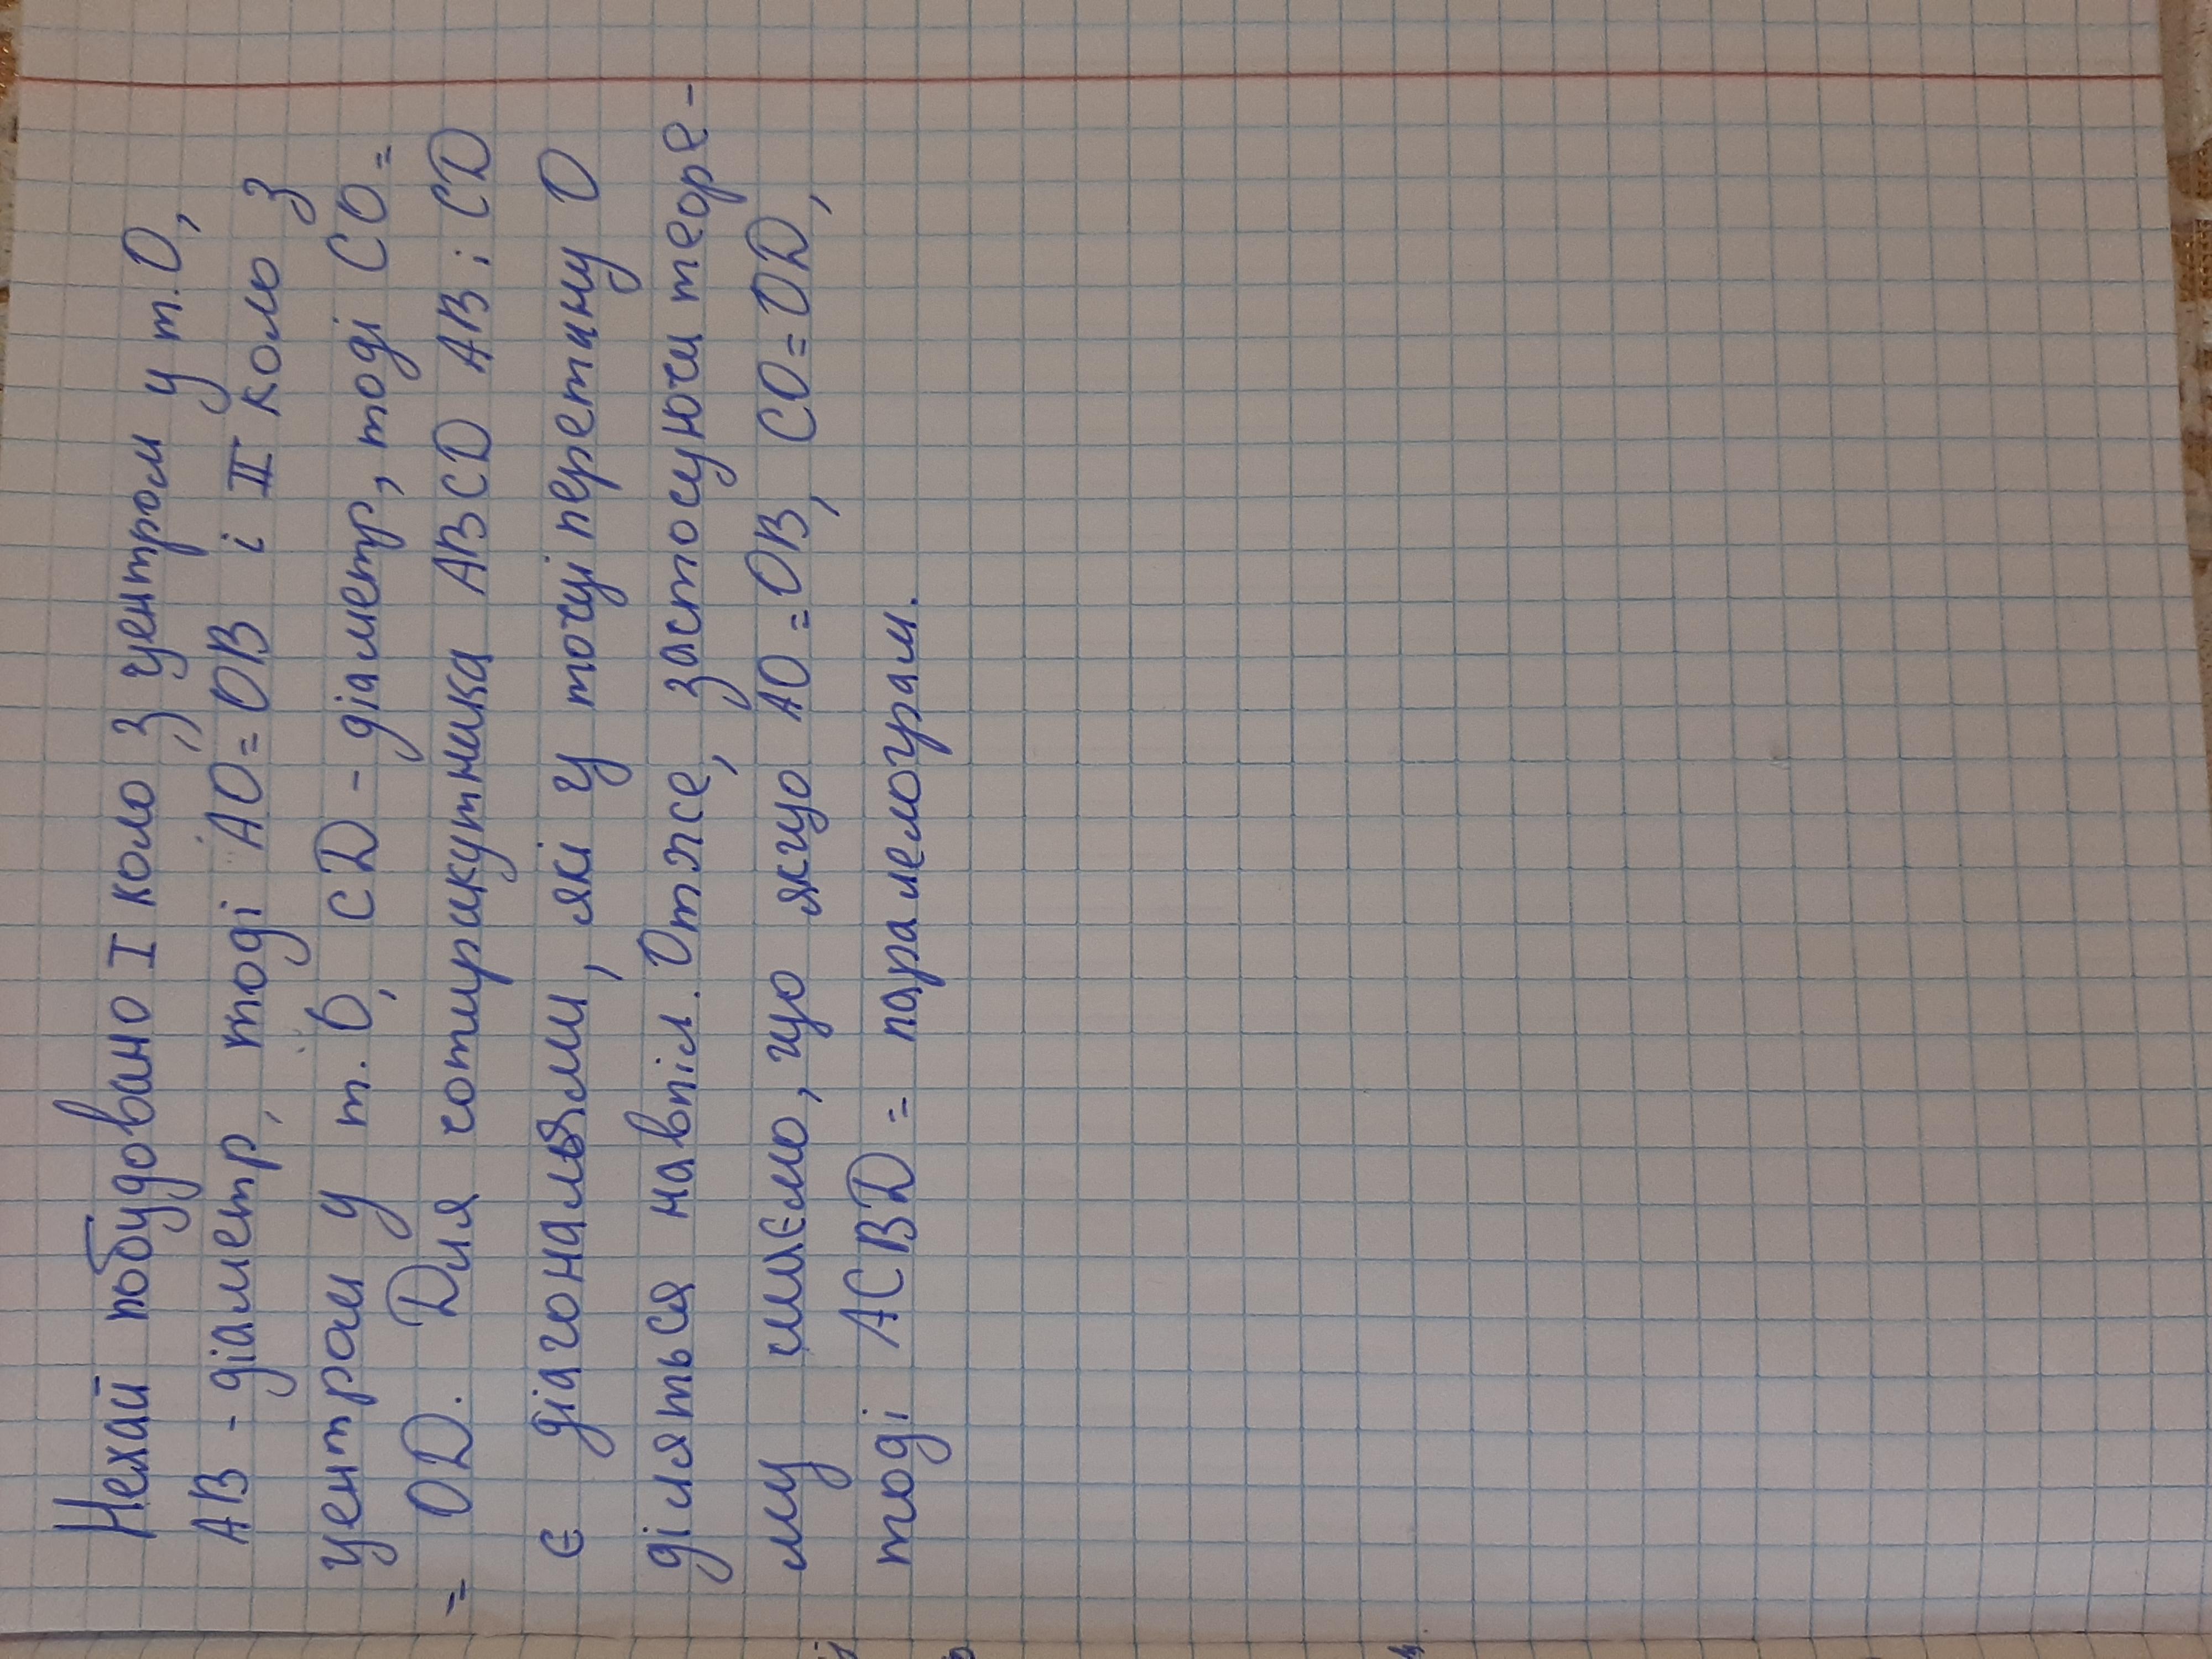 Нехай побудовано I коло з центром у т.О,
АВ - діаметр, тоді АО=ОВ і II коло з
центром у т.О, СD - діаметр, тоді СО=
= ОD. Для чотирикутника АВСD АВ і СD
є діагоналями, які у точці перетину О
діляться навпіл. Отже, застосуючи теоре-
му маємо, що якщо АО=ОВ, СО=ОD,
тоді АСВD = паралелограм.